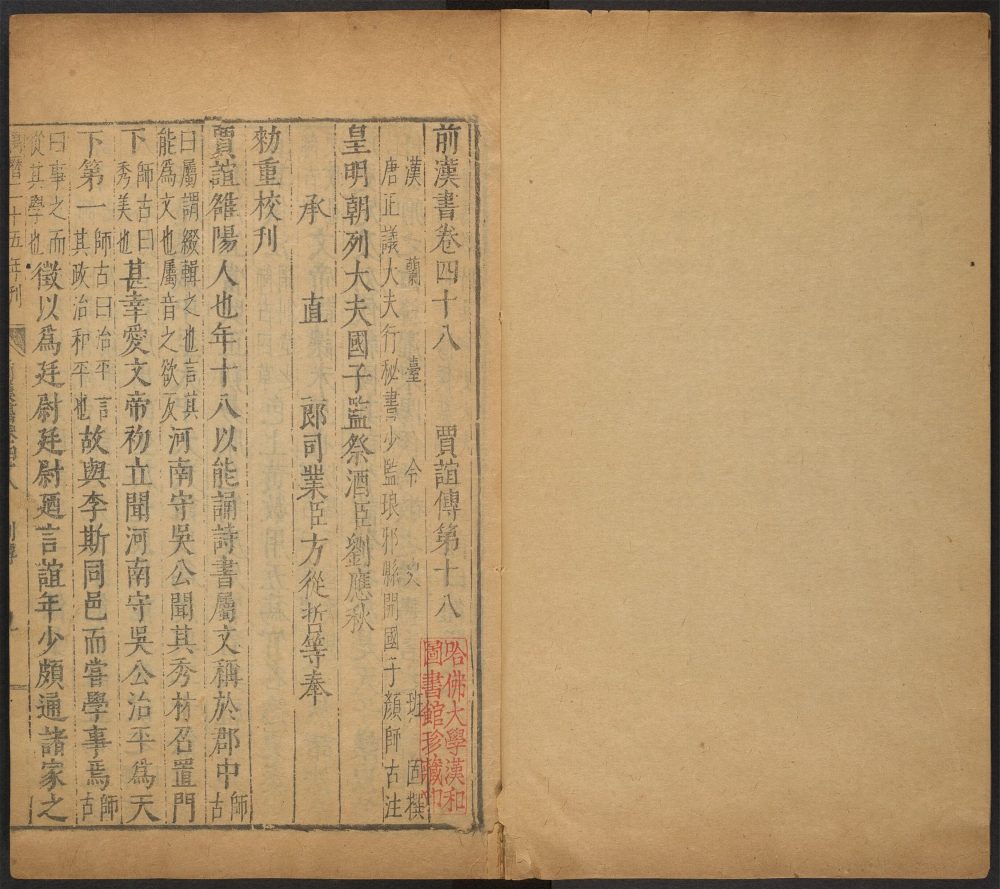 前漢書卷四十八 賈誼傳第十八
漢蘭臺令史班固撰
唐正議大夫行秘書少監琅邪縣開國子顏師古注
皇明朝列大夫國子監祭酒臣劉應秋
承直郎司業臣方從哲等奉
勑重校刊
賈誼雒陽人也年十八以能誦詩書屬文稱於郡中師古
曰屬謂綴輯之也言其能為文也屬音之欲反河南守吳公聞其秀材召置門
下師古曰秀美也甚幸愛文帝初立聞河南守吳公治平爲天
下第一師古曰治平言其政治和平也故與李斯同邑而嘗學事焉師古
曰事之而從其學也徵以爲廷尉廷尉廼言誼年少頗通諸家之
萬曆二十五年刊
哈佛大學漢和圖書館珍藏印